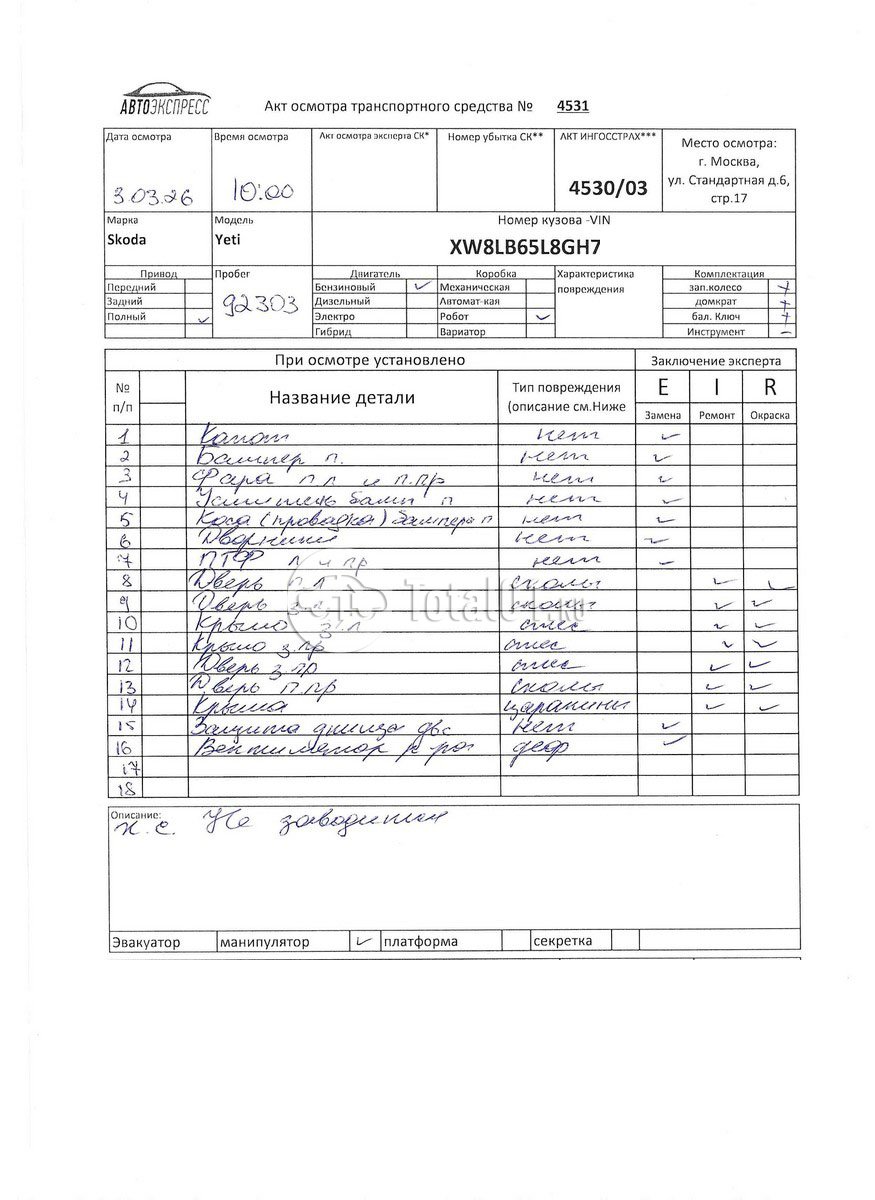 АВТОЭКСПРЕСС
Акт осмотра транспортного средства № 4531
Дата осмотра
3.03.26
Время осмотра
10:00
Акт осмотра эксперта СК*
Номер убытка СК**
АКТ ИНГОССТРАХ***
4530/03
Место осмотра:
г. Москва,
ул. Стандартная д.6,
стр.17
Марка
Skoda
Модель
Yeti
Номер кузова -VIN
XW8LB65L8GH7
Привод
Передний
Задний
Полный ✓
Пробег
92303
Двигатель
Бензиновый ✓
Дизельный
Электро
Гибрид
Коробка
Механическая
Автомат-кая
Робот ✓
Вариатор
Характеристика
повреждения
Комплектация
зап.колесо +
домкрат +
бал. Ключ +
Инструмент –
При осмотре установлено
Заключение эксперта
№
п/п
Название детали
Тип повреждения
(описание см.Ниже
E I R
Замена Ремонт Окраска
1 Капот нет ✓
2 Бампер п. нет ✓
3 Фара п л и п.пр нет ✓
4 Усилитель бамп п нет ✓
5 Коса (проводка) бампера п нет ✓
6 Дворники нет ✓
7 ПТФ л и пр нет ✓
8 Дверь п л сколы ✓ ✓
9 Дверь з л сколы ✓ ✓
10 Крыло з л ✓ ✓
11 Крыло з.пр ✓ ✓
12 Дверь з.пр ✓ ✓
13 Дверь п.пр сколы ✓ ✓
14 Крыша царапины ✓ ✓
15 Защита днища двс нет ✓
16 деф ✓
17
18
TotalCar.RU
Описание:
Не заводится
Эвакуатор манипулятор ✓ платформа секретка